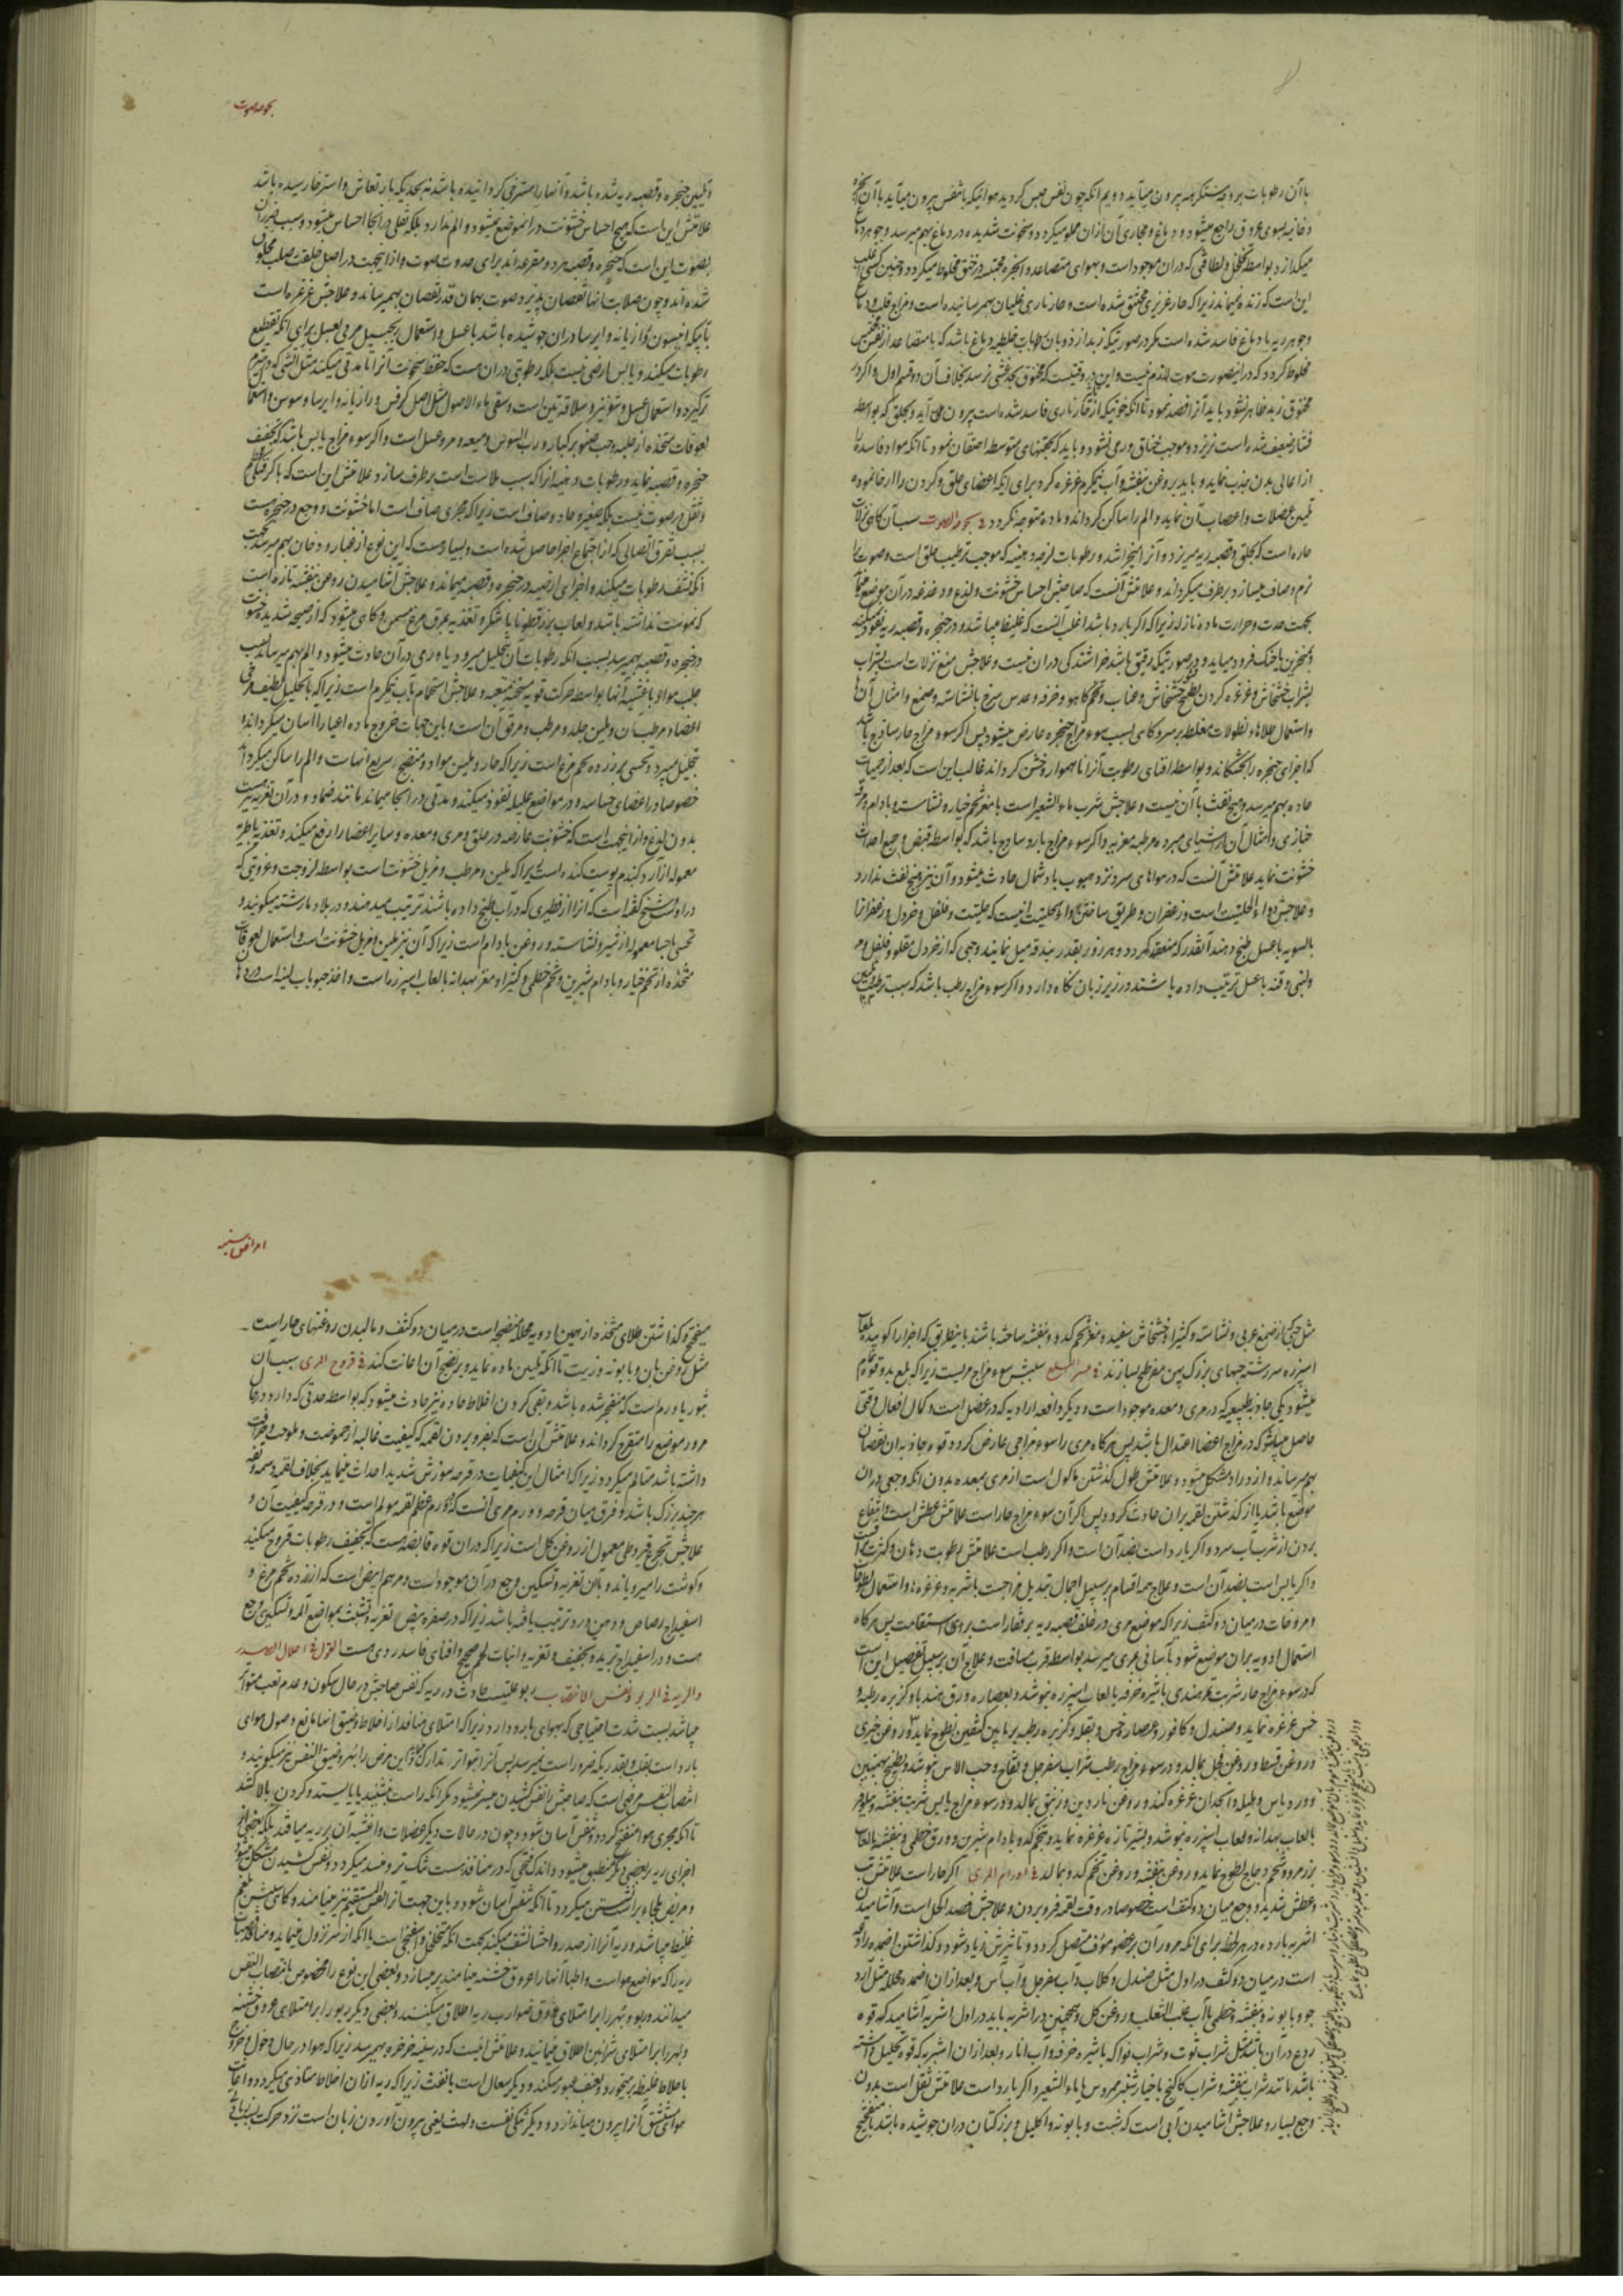 با آن رطوبات بر وجه تنکر همه بیرون میآید دویم آنکه چون نفس حبس کردید هوائیکه بتنفس بیرون میآید با آن
دخانیه بسوی عروق راجع میشود و دماغ و مجاری آن ازان مملو میکردد و سخونت شدیده در دماغ بهم میرسد و جوهر دماغ
میکدازد بواسطه تخلخل و لطافتی که دران موجود است و بهوای متصاعد و انجره محتبسه در خنق مخلوط میکردد و چنین کسی اغلب
این است که زنده نمیماند زیرا که حار غریزی مختنق شده است و حار ناری غلیان بهم رسانیده است و مزاج قلب و دماغ
و جوهر ریه یا دماغ فاسد شده است مکر در صورتیکه زبد از ذوبان رطوبات غلیظه دماغ باشد که با متصاعد از نفس
مخلوط کردد که در اینصورت موت لازم نیست و این در وقتیست که مخنوق بحد غشی نرسد بخلاف آن دو قسم اول و اکر در
مخنوق زبد ظاهر نشود باید آنرا فصد نمود تا آنکه خونیکه از بخار ناری فاسد شده است بیرون می آید و بحلق که بواسطه
فشار ضعیف شده است نریزد و موجب خناق ورمی نشود و باید که بحقنهای متوسطه احتقان نمود تا آنکه مواد فاسده را
از اعالی بدن جذب نماید و باید بروغن بنفشه و آب نیکرم غرغره کرد برای اینکه اعضای حلق و کردن را ارخا نموده
تلیین عضلات و اعصاب آن نماید و الم را ساکن کرداند و ماده متوجه نکردد فی بحوحة الصوت سبب آن کاهی نزلات
حاره است که بحلق و قصبه ریه میریزد و آنرا میخراشد و رطوبات لزجه دهنیه که موجب ترطیب حلق است و صوت را
نرم و صاف میسازد برطرف میکرداند و علامتش آنست که صاحبش احساس خشونت و لذع و دغدغه در آن موضع
بجهت حدت و حرارت ماده نازله زیرا که اکر بارد باشد اغلب آنست که غلیظ میباشد و در حنجره و قصبه ریه نفوذ نمیکند
بشراب خشخاش و غرغره کردن بطبیخ خشخاش و عناب و تخم کاهو و خرفه و عدس سرخ با نشاسته و صمغ و امثال آنها
و استعمال طلاها و نطولات مغلظه بر سر و کاهی بسبب سوء مزاج حنجره عارض میشود پس اکر سوء مزاج حار ساذج باشد
که اجزای حنجره را بخشکاند و بواسطه افنای رطوبت آنرا ناهموار و خشن کرداند غالب این است که بعد از حمیات
حاده بهم میرسد و هیچ نفث با آن نیست و علاجش شرب ماء الشعیر است با مغز تخم خیار و نشاسته و بادام
خبازی و امثال آن از اشیای مبرده مرطبه مغریه و اکر سوء مزاج بارد ساذج باشد که بواسطه قبض و جمع احداث
خشونت نماید علامتش آنست که در هواهای سرد و نزد هبوب باد شمال حادث میشود و آن نیز هیچ نفث ندارد
و علاجش دواء الحلتیت است و زعفران و طریق ساختن دواء الحلتیت اینست که حلتیت و فلفل و خردل و زعفران را
بالسویه با عسل طبخ دهند آنقدر که منعقد کردد و هر روز بقدر بندقه میل نمایند و حبی که از خردل مقلو و فلفل و مر
و لبنی و قنه با عسل ترتیب داده باشند در زیر زبان نکاه دارد و اکر سوء مزاج رطب باشد که سبب ترطیب
بحوحة صوت
و تلیین حنجره و قصبه ریه شده باشد و آنها را مسترخی کردانیده باشد نه بحدیکه بارتعاش و استرخا رسیده باشد
علامتش این است که هیچ احساس خشونت در انموضع نمیشود و الم ندارد بلکه ثقلی در آنجا احساس میشود و سبب
بصوت این است که حنجره و قصبه هر دو مقرعه اند برای حدوث صوت و از اینجهت در اصل خلقت صلب مخلوق
شده اند و چون صلابت آنها نقصان پذیرد صوت بهمان قدر نقصان بهم میرساند و علاجش غرغره است
بآبیکه انیسون و رازیانه و ایرسا دران جوشیده باشد با عسل و استعمال زنجبیل مربی بعسل برای آنکه تقطیع
رطوبات میکند و یابس ارضی نیست بلکه رطوبتی دران هست که حفظ سخونت آنرا تا مدتی میکند
لعوقات متخذه از حلبه و حب صنوبر کبار و رب السوس و میعه و مر و عسل است و اکر سوء مزاج یابس باشد که تجفیف
حنجره و قصبه نماید و رطوبات دهنیه آنرا که سبب ملاست است برطرف سازد علامتش این است که با کرفتکی
و ثقل در صوت نیست بلکه صغیر و حاد و صاف است زیرا که مجری صاف است اما خشونت و وجع در حنجره هست
بسبب تفرق اتصالی که از اجتماع اجزا حاصل شده است و بسیار هست که این نوع از غبار و دخان بهم میرسد بجهت
آنکه نشف رطوبات میکنند و اجزای ارضیه در حنجره و قصبه میماند و علاجش آشامیدن روغن بنفشه تازه است
که نموست نداشته باشد و لعاب بزرقطونا با شکر و تغذیه بمرق مرغ مسمن و کاهی میشود که از صیحه شدیده خشونت
در حنجره و قصبه بهم میرسد بسبب آنکه رطوبات آن بتحلیل میرود یا ورمی در آن حادث میشود و الم بهم میرساند بسبب
اعضا و مرطب آن و ملین جلد و مرطب و مرقق آن است و باین جهات خروج ماده اعیا را آسان میکرداند و
بتحلیل میبرد و تحسی بزرده تخم مرغ است زیرا که حار و ملین مواد و منضج سریع آنهاست و الم را ساکن میکرداند
خصوصا در اعضای حساسه و در مواضع علیله نفوذ میکند و مدتی در آنجا میماند مانند ضماد و در آن تغریه هست
بدون لذع و از اینجهت است که خشونت عارضه در حلق و مری و معده و سایر اعضا را رفع میکند و تغذیه باطریه
معموله از آرد کندم پوست کنده است زیرا که ملین و مرطب و مزیل خشونت است بواسطه لزوجت و غرویتی که
تحسی باحسا معموله از شیر و نشاسته و روغن بادام است زیرا که آن نیز ملین و مزیل خشونت است و استعمال لعوقات
متخذه از تخم خیار و بادام شیرین و تخم خطمی و کثیرا و مغز بهدانه بلعاب اسپرزه ماست و اخذ حبوبات لینه است
مثل حبی که از صمغ عربی و نشاسته و کثیرا و خشخاش سفید و مغز تخم کدو و بنفشه ساخته باشند باینطریق که اجزا را کوبیده بلعاب
اسپرزه سرشته حبهای بزرک پهن مفرطح بسازند فی عسر البلع سببش سوء مزاج مریست زیرا که بلع بدو قوه تمام
میشود یکی جاذبه طبیعیه که در مری و معده موجود است و دیکر دافعه ارادیه که در عضل است و کمال افعال وقتی
حاصل میشود که در مزاج اعضا اعتدال باشد پس هرکاه مری را سوء مزاجی عارض کردد قوه جاذبه آن نقصان
بهم میرساند و ازدراد مشکل میشود و علامتش طول کذشتن ماکول است از مری بمعده بدون آنکه وجعی دران
موضع باشد یا از کذشتن لقمه بران حادث کردد پس اکر آن سوء مزاج حار است علامتش عطش است و انتفاع
بردن از شرب آب سرد و اکر بارد است بضد آن است و اکر رطب است علامتش رطوبت دهان و کثرت
و اکر یابس است بضد آن است و علاج همه اقسام بر سبیل اجمال تبدیل مزاجست باشربه و غرغره ها و استعمال لطوخات
و مروخات در میان دو کتف زیرا که موضع مری در خلف قصبه ریه بر فقار است بروی استقامت پس هرکاه
استعمال ادویه بران موضع شود بآسانی بمری میرسد بواسطه قرب مسافت و علاج آن بر سبیل تفصیل این است
که در سوء مزاج حار شربت تمر هندی با شیره خرفه یا لعاب اسپرزه بنوشد و بعصاره ورق هندبا و کزبره رطبه و
خس غرغره نماید و صندل و کافور و عصاره خس و بقله و کزبره رطبه بر مابین کتفین لطوخ نماید
و روغن قسط و روغن فجل بمالد و در سوء مزاج رطب شراب سفرجل و تفاح و حب الاس بنوشد و بطبیخ بهمنین
و ورد یابس و بلیله و انجدان غرغره کند و روغن ناردین و زنبق بمالد و در سوء مزاج یابس شربت بنفشه و نیلوفر
بالعاب بهدانه و لعاب اسپرزه بنوشد و بشیر تازه غرغره نماید و تخم کدو و بادام شیرین و ورق خطمی و بنفشه بالعاب
بزرمرو و شحم دجاج لطوخ نماید و روغن بنفشه و روغن تخم کدو بمالد فی اورام المری اکر حار است علامتش تب
و عطش شدید و وجع میان دو کتف است خصوصا در وقت لقمه فرو بردن و علاجش فصد اکحل است و آشامیدن
اشربه بارده در هر لحظه برای آنکه مرور آن بر عضو مؤف متصل کردد و تاثیرش زیاد شود و کذاشتن اضمده رادعه
است در میان دو کتف در اول مثل صندل و کلاب و آب سفرجل و آب آس و بعد ازان اضمده محلله مثل آرد
جو و بابونه و بنفشه و خطمی با آب عنب الثعلب و روغن کل و همچنین در اشربه باید در اول اشربه آشامید که قوه
ردع در آن باشد مثل شراب توت و شراب فواکه با شیره خرفه و آب انار و بعد ازان اشربه که قوه تحلیل داشته
باشد مانند شراب بنفشه و شراب کاکنج با خیار شنبر ممروس با ماء الشعیر و اکر بارد است علامتش ثقل است بدون
وجع بسیار و علاجش آشامیدن آبی است که شبت و بابونه و اکلیل و بزر کتان دران جوشیده باشد با
امراض سینه
میبختج و کذاشتن طلای متخذه از همین ادویه محلله منضجه است در میان دو کتف و مالیدن روغنهای حار است
مثل روغن بان و بابونه و زیت تا آنکه تلیین ماده نماید و بر نضج آن اعانت کند فی قروح المری سبب آن
بثور یا ورم است که منفجر شده باشد و بقی کردن اخلاط حاده نیز حادث میشود که بواسطه حدتی که دارد در حال
مرور موضع را متقرح کرداند و علامتش آن است که بفرو بردن لقمه که کیفیت غالبه از حموضت و ملوحت و حرافت
داشته باشد متالم میکردد زیرا که امثال این کیفیات در قرحه سوزش شدید احداث مینماید بخلاف لقمه دسمه و تفه
هرچند بزرک باشد و فرق میان قرحه و ورم مری آنست که در ورم عظم لقمه مولم است و در قرحه کیفیت آن و
علاجش تجرع قیروطی معمول از روغن کل است زیرا که دران قوه قابضه هست که تجفیف رطوبات قروح میکند
و کوشت را میرویاند و با آن تغریه و تسکین وجع در آن موجود است و مرهم ابیض است که از زرده تخم مرغ و
اسفیداج رصاص و دهن ورد ترتیب یافته باشد زیرا که در صفره بیض تغریه و تشبث بمواضع آلمه و تسکین وجع
هست و در اسفیداج تبرید و تجفیف و تغریه و انبات لحم صحیح و افنای فاسد ردی هست القول فی احوال الصدر
والریه فی الربو و نفس الانتصاب ربو علتیست حادث در ریه که نفس صاحبش در حال سکون و عدم تعب متواتر
میباشد بسبب شدت احتیاجی که بهوای بارد دارد زیرا که امتلای منافذ از اخلاط و ضیق آنها مانع وصول هوای
بارد است بقلب بقدریکه ضرور است نمیرسد پس آنرا تواتر تدارک میکند و این مرض را بهر و ضیق النفس نیز میکویند و
انتصاب النفس مرضی است که صاحبش را نفس کشیدن میسر نمیشود مکر آنکه راست بنشیند یا بایستد و کردن بالا کشد
تا آنکه مجری هوا منفتح کردد و نفس آسان شود و چون در حالات دیکر عضلات و اغشیه آن بر ریه میافتد بلکه بعضی از
اجزای ریه بر بعضی دیکر منطبق میشود و اندک فتحی که در منافذ هست تنک تر و منسد میکردد و نفس کشیدن مشکل میشود
و مریض ملجاء براست نشستن میکردد تا آنکه تنفس آسان شود و باین جهت آنرا نفس مستقیم نیز مینامند و کاهی سببش بلغم
غلیظ میباشد و ریه آنرا از صدر و احشا نشف میکند بجهت آنکه متخلخل و اسفنجی است یا آنکه از سر نزول مینماید و منافذ
ریه را که مواضع هوا است و اطبا آنها را عروق خشنه مینامند پر میسازد و بعضی این نوع را مخصوص بانتصاب النفس
میدانند و ربو و بهر را بر امتلای عروق ضوارب ریه اطلاق میکنند و بعضی دیکر ربو را بر امتلای عروق خشنه
و بهر را بر امتلای شرائین اطلاق مینمایند و علامتش اینست که در سینه خرخره بهم میرسد زیرا که هوا در حال دخول و خروج
باخلاط غلیظه بر میخورد و بعنف عبور میکند و دیکر سعال است با نفث زیرا که ریه ازان اخلاط متاذی میکردد و
هوای مستنشق آنرا بیرون میاندازد و دیکر تنکی نفست و لهث یعنی بیرون آوردن زبان است نزد حرکت